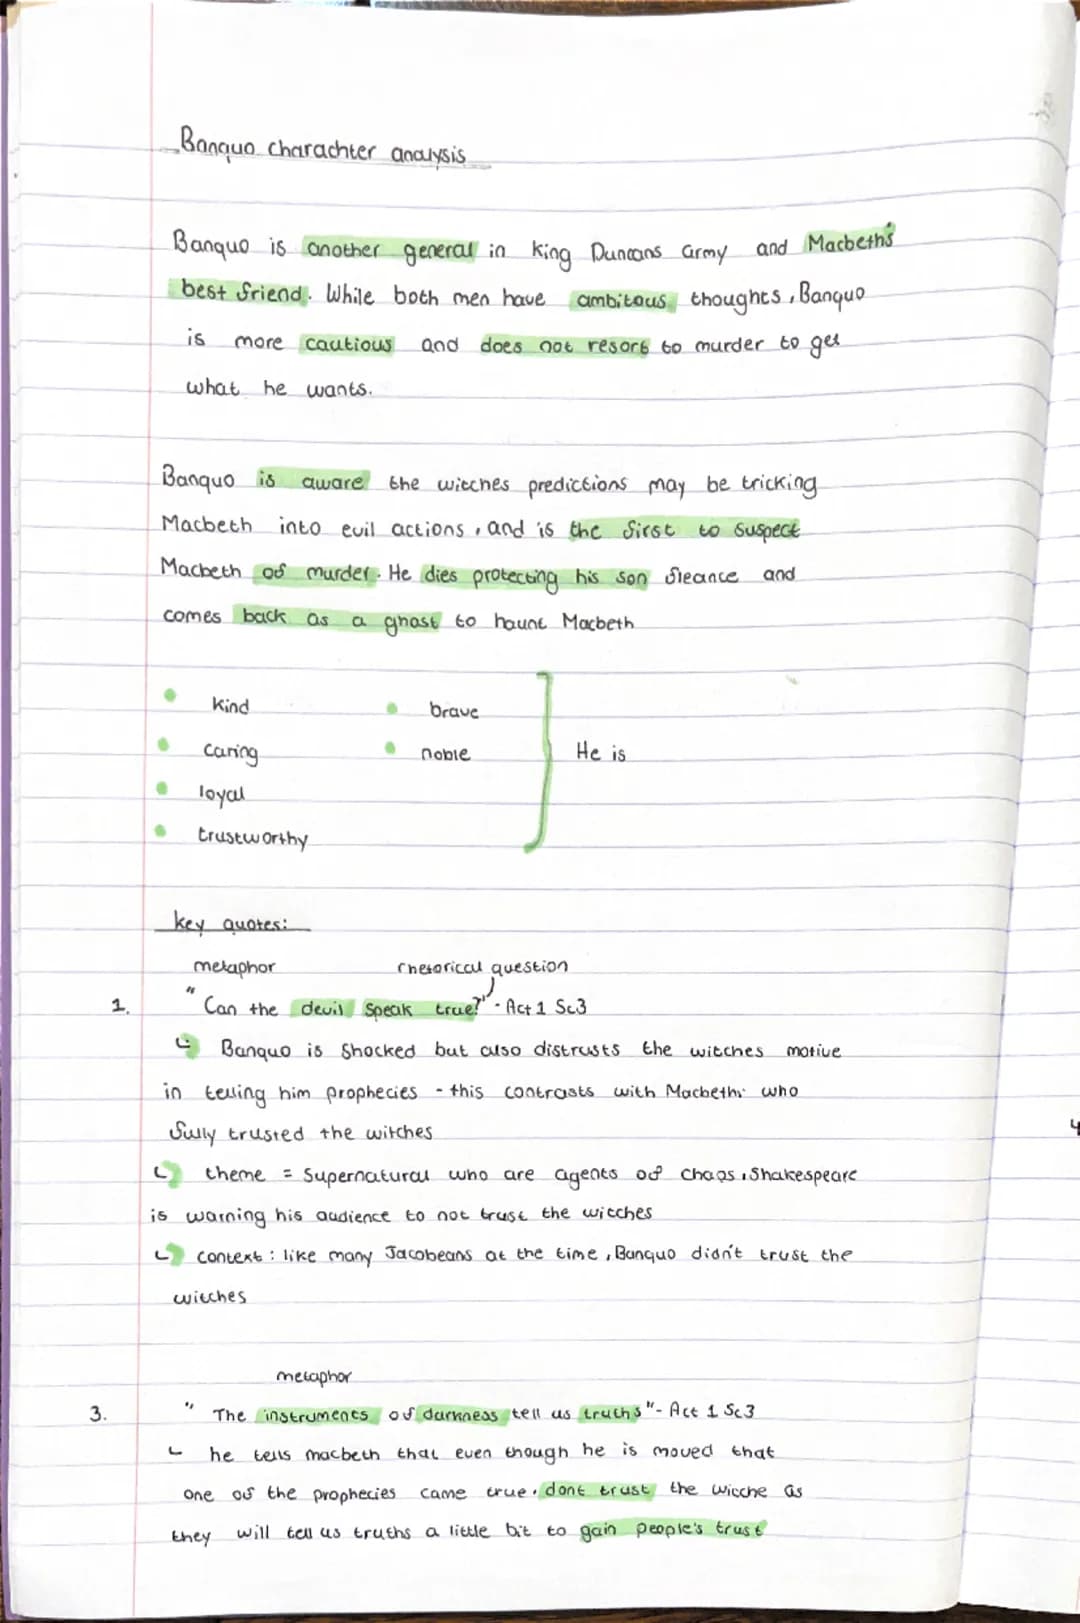 Banquo charachter analysis
Banquo is another general in king Duncans army and Macbeth's
best friend. While both men have ambitous thoughts, Banquo
is more cautious and does not resort to murder to get
what he wants.
Banquo is aware the witches predictions may be tricking
Macbeth into evil actions, and is the first to suspect
Macbeth of murder. He dies protecting his son fleance and
comes back as a ghost to haunt Macbeth
kind brave
caring noble He is
loyal
trustworthy
key quotes:
metaphor rhetorical question
1. "Can the devil speak true?" - Act 1 Sc3
Banquo is shocked but also distrusts the witches motive
in telling him prophecies - this contrasts with Macbeth who
fully trusted the witches
theme = Supernatural who are agents of chaos, Shakespeare
is warning his audience to not trust the witches
context: like many Jacobeans at the time, Banquo didn't trust the
witches
metaphor
3. "The instruments of darkness tell us truths" - Act 1 Sc3
he tells macbeth that even though he is moved that
one of the prophecies came true, dont trust the witche as
they will tell us truths a little bit to gain people's trust
4